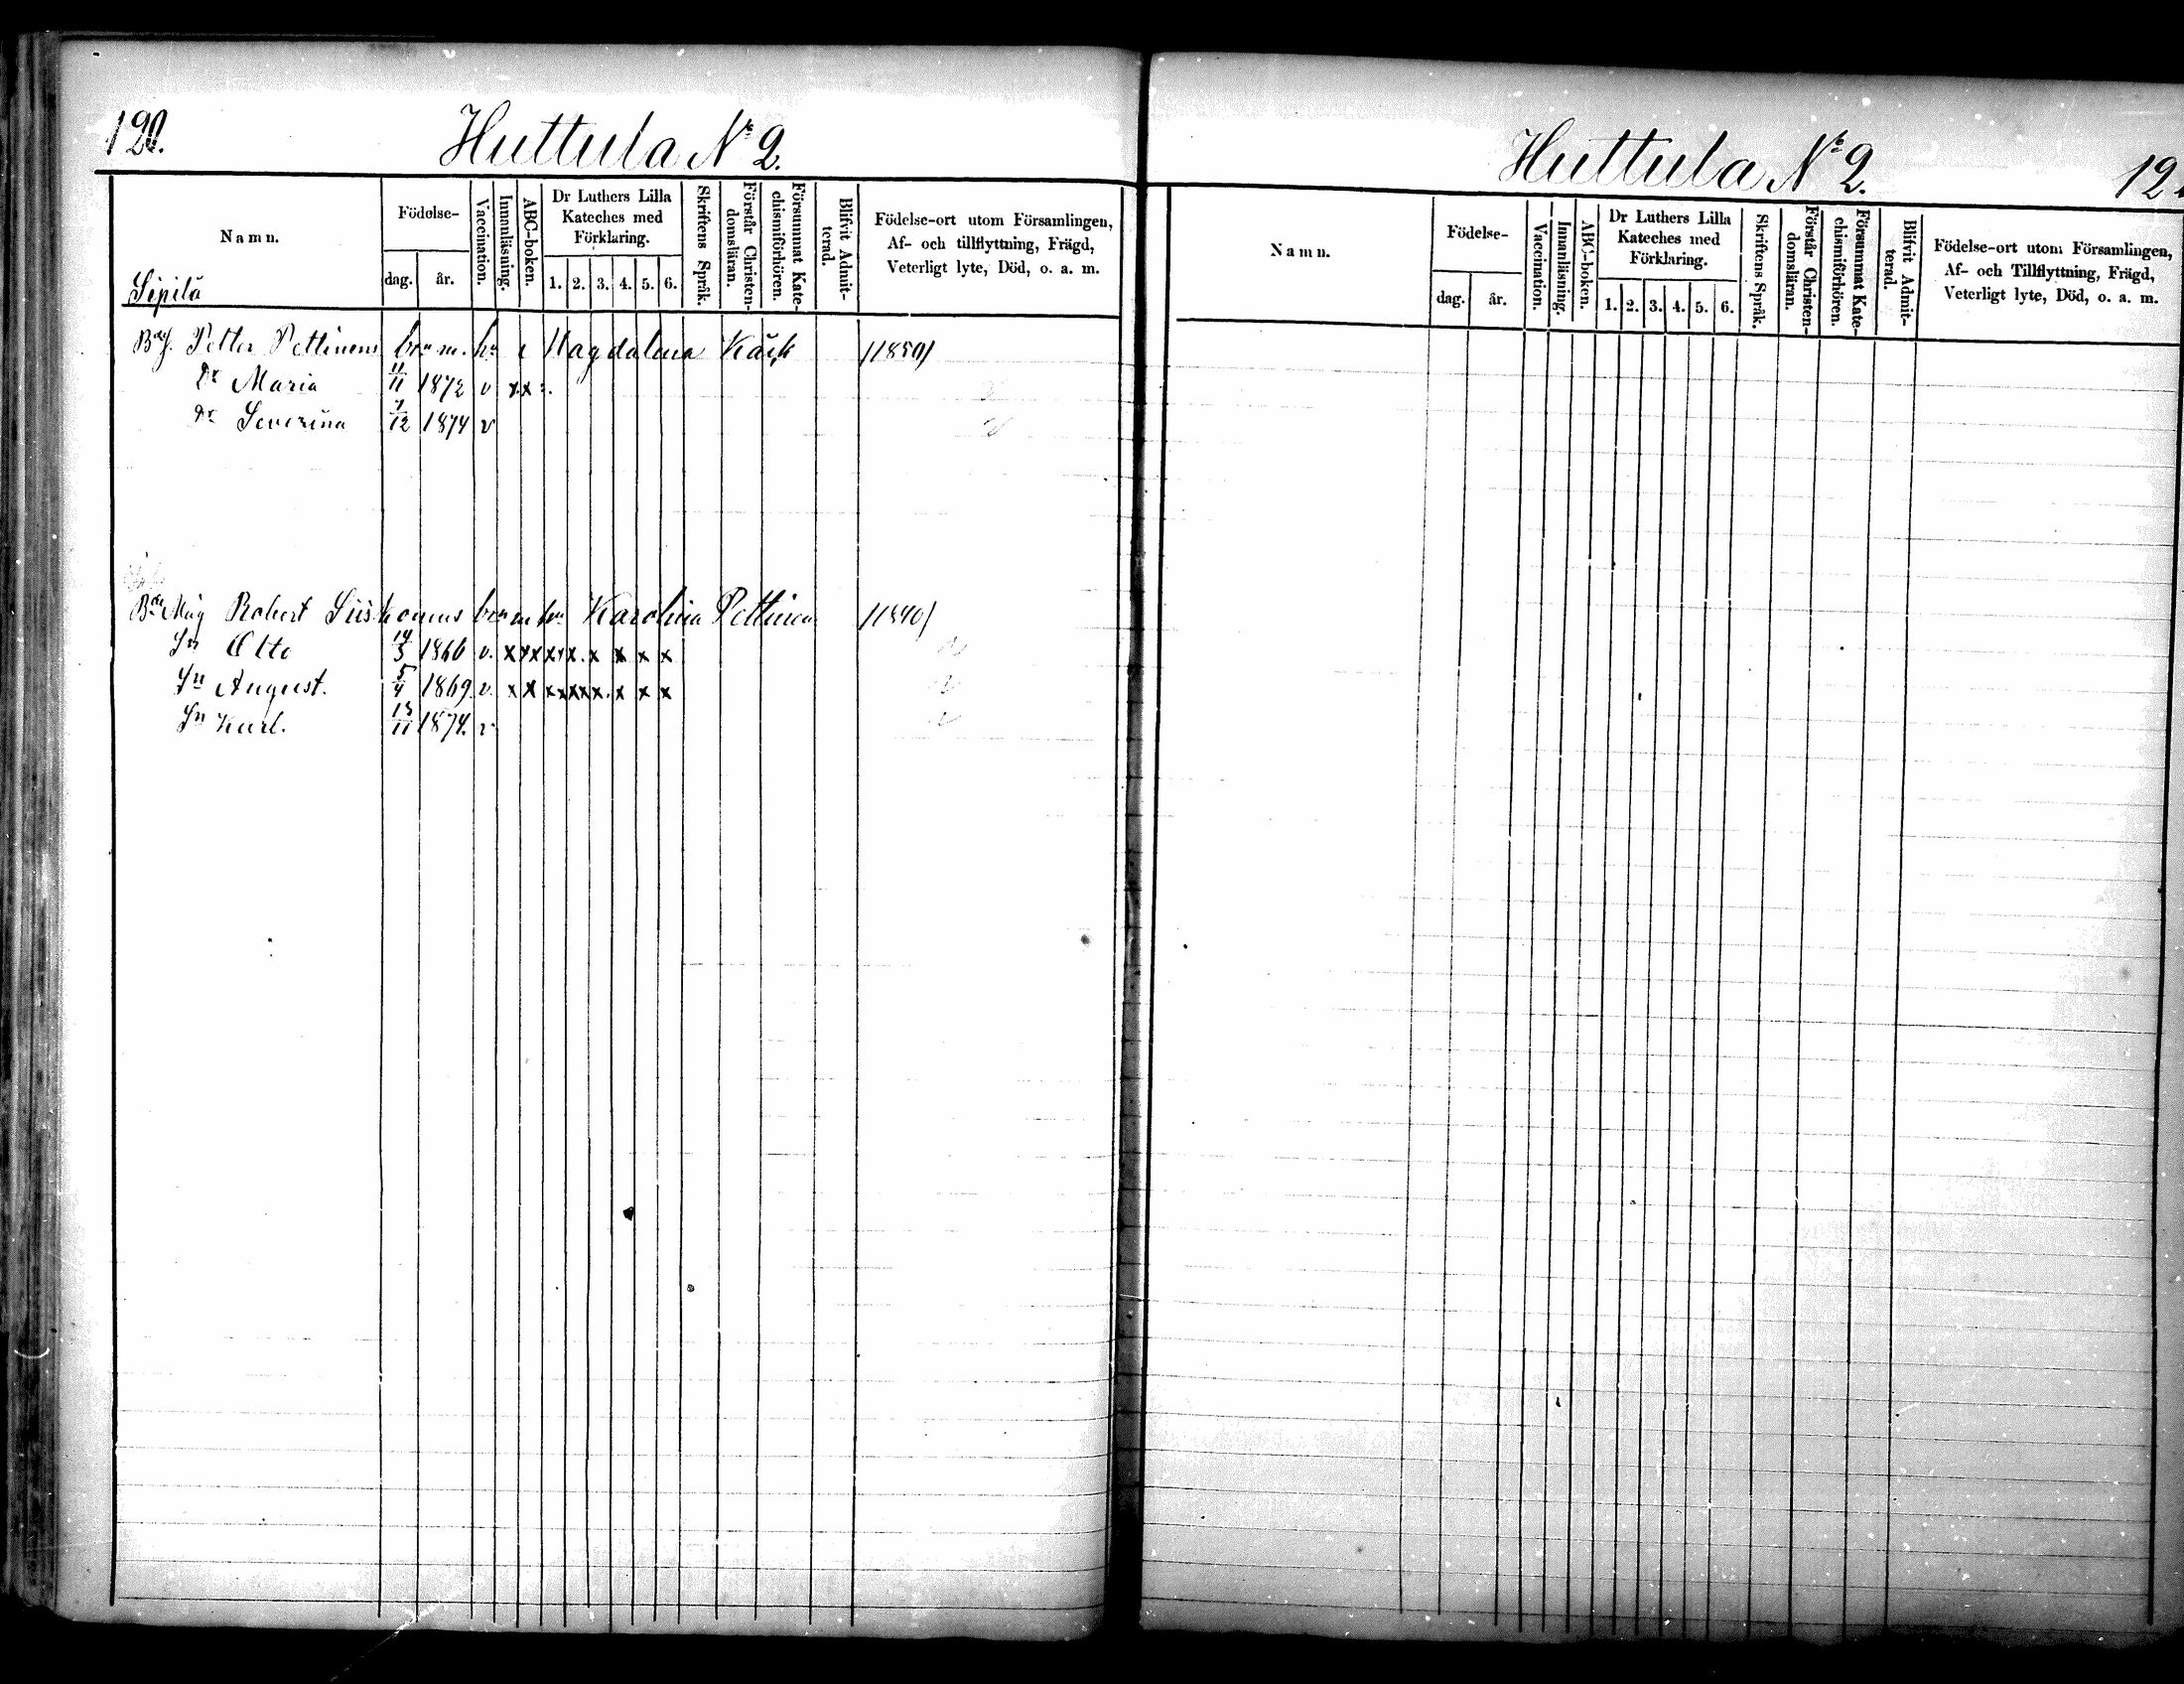 120.
Huttula No 2.
Namn.
Födelse-
dag.
år.
Vaccination.
Innanläsning.
ABC-boken.
Dr Luthers Lilla
Kateches med
Förklaring.
1. 2. 3. 4. 5. 6.
Skriftens Språk.
Förstår Christen-
domsläran.
Försummat Kate-
chismiförhören.
Blifvit Admit-
terad.
Födelse-ort utom Församlingen,
Af- och tillflyttning, Frägd,
Veterligt lyte, Död, o. a. m.
Sipilä
Petter Pettinens Magdalena /1850/
Dr Maria 11/11 1872 v x x
Dr Severina 7/12 1874 v
Robert Karolina Pettinen /1840/
Sn Otto 1866 v. x x x x x x. x x x x
Sn August. 5/4 1869. v. x x x x x x x. x x x
Sn Karl. 13/11 1874. v
Huttula No 2.
12
Namn.
Födelse-
dag.
år.
Vaccination.
Innanläsning.
ABC-boken.
Dr Luthers Lilla
Kateches med
Förklaring.
1. 2. 3. 4. 5. 6.
Skriftens Språk.
Förstår Christen-
domsläran.
Försummat Kate-
chismiförhören.
Blifvit Admit-
terad.
Födelse-ort utom Församlingen,
Af- och Tillflyttning, Frägd,
Veterligt lyte, Död, o. a. m.